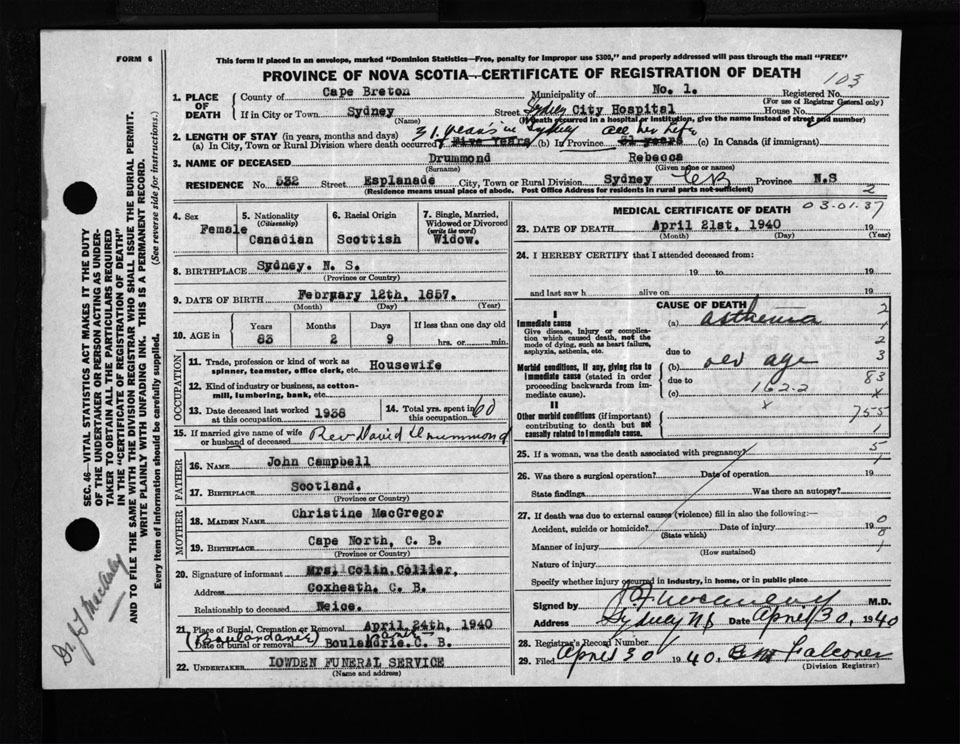 FORM 6
This form if placed in an envelope, marked "Dominion Statistics—Free, penalty for improper use $300," and properly addressed will pass through the mail "FREE"
PROVINCE OF NOVA SCOTIA—CERTIFICATE OF REGISTRATION OF DEATH
103
1. PLACE OF DEATH
County of Cape Breton Municipality of No. 1. Registered No.
(For use of Registrar General only)
If in City or Town Sydney Street Sydney City Hospital House No.
(Name) (If death occurred in a hospital or institution, give the name instead of street and number)
2. LENGTH OF STAY (in years, months and days) 31 years in Sydney all her life
(a) In City, Town or Rural Division where death occurred Five Years (b) In Province 31 years (c) In Canada (if immigrant)
3. NAME OF DECEASED Drummond Rebecca
(Surname) (Given name or names)
RESIDENCE No. 532 Street Esplanade City, Town or Rural Division Sydney CB Province N.S
(Residence means usual place of abode. Post Office Address for residents in rural parts not sufficient) 2
4. Sex
Female
5. Nationality
(Citizenship)
Canadian
6. Racial Origin
Scottish
7. Single, Married, Widowed or Divorced
(write the word)
Widow.
8. BIRTHPLACE Sydney. N. S.
(Province or Country)
9. DATE OF BIRTH February 12th, 1857.
(Month) (Day) (Year)
10. AGE in
Years Months Days If less than one day old
83 2 9 hrs. or min.
OCCUPATION
11. Trade, profession or kind of work as Housewife
spinner, teamster, office clerk, etc.
12. Kind of industry or business, as cotton-
mill, lumbering, bank, etc.
13. Date deceased last worked 1938
at this occupation
14. Total yrs. spent in 60
this occupation
15. If married give name of wife
or husband of deceased Rev David Drummond
FATHER
16. NAME John Campbell
17. BIRTHPLACE Scotland.
(Province or Country)
MOTHER
18. MAIDEN NAME Christine MacGregor
19. BIRTHPLACE Cape North, C. B.
(Province or Country)
20. Signature of informant Mrs. Colin Collier,
Address Coxheath, C. B.
Relationship to deceased Neice.
21. Place of Burial, Cremation or Removal April 24th, 1940
Date of burial or removal Boulardrie C. B.
22. UNDERTAKER LOWDEN FUNERAL SERVICE
(Name and address)
MEDICAL CERTIFICATE OF DEATH 03.01.37
23. DATE OF DEATH April 21st, 1940 19
(Month) (Day) (Year)
24. I HEREBY CERTIFY that I attended deceased from:
19 to 19
and last saw h alive on 19
CAUSE OF DEATH
I
Immediate cause (a) asthenia
Give disease, injury or complica-
tion which caused death, not the
mode of dying, such as heart failure,
asphyxia, asthenia, etc.
due to
Morbid conditions, if any, giving rise to (b) old age
immediate cause (stated in order
proceeding backwards from im-
mediate cause).
due to
(c) 162.2
x
II
Other morbid conditions (if important)
contributing to death but not
causally related to immediate cause.
2
1
2
3
83
x
755
1
5
1
25. If a woman, was the death associated with pregnancy?
26. Was there a surgical operation? Date of operation
State findings Was there an autopsy?
27. If death was due to external causes (violence) fill in also the following:—
Accident, suicide or homicide? Date of injury 19
(State which)
Manner of injury
(How sustained)
Nature of injury
Specify whether injury occurred in industry, in home, or in public place
0
8
1
Signed by M.D.
Address Sydney NS Date April 30, 1940
28. Registrar's Record Number
29. Filed April 30 1940. Falconer
(Division Registrar)
SEC. 46—VITAL STATISTICS ACT MAKES IT THE DUTY
OF THE UNDERTAKER OR PERSON ACTING AS UNDER-
TAKER TO OBTAIN ALL THE PARTICULARS REQUIRED
IN THE "CERTIFICATE OF REGISTRATION OF DEATH"
AND TO FILE THE SAME WITH THE DIVISION REGISTRAR WHO SHALL ISSUE THE BURIAL PERMIT.
WRITE PLAINLY WITH UNFADING INK. THIS IS A PERMANENT RECORD.
Every item of information should be carefully supplied. (See reverse side for instructions.)